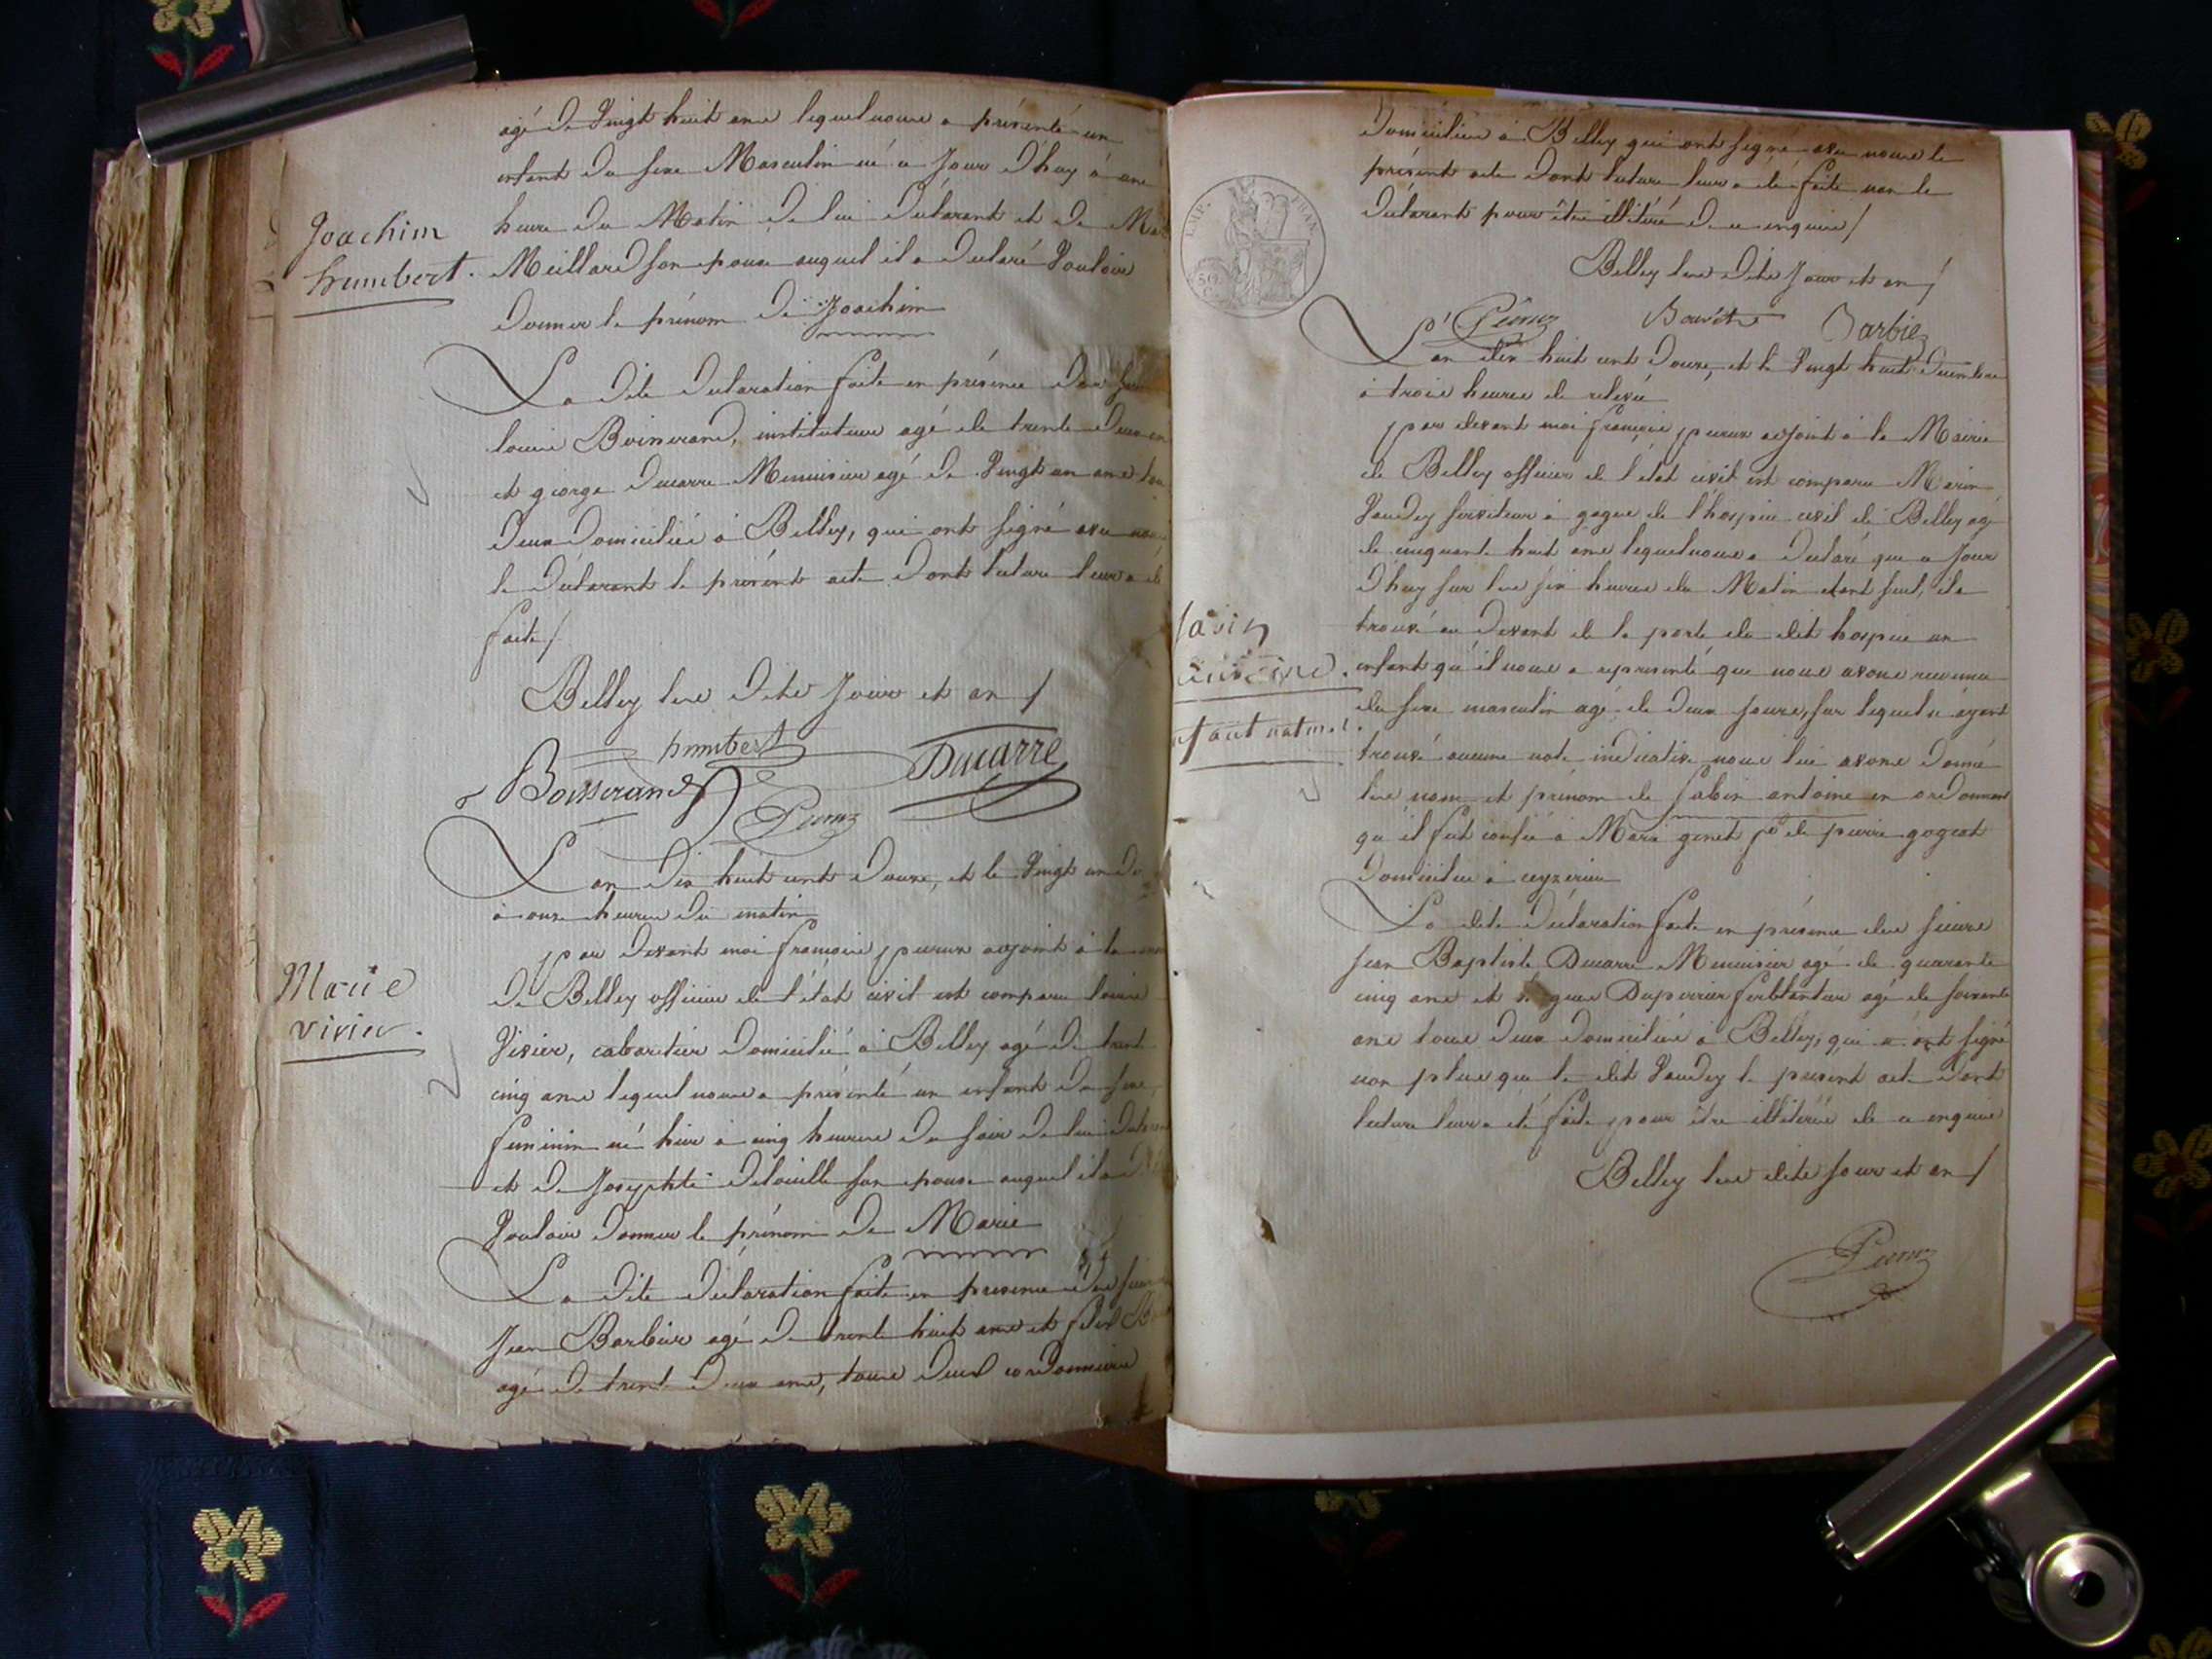 agé de Vingt huit ans lequel nous a présenté un
enfant du sexe Masculin né ce Jour d'huy à une
heure du Matin de lui déclarant et de
Joachim
humbert.
Meillard son epouse auquel il a déclaré Vouloir
donner le prénom de Joachim
La dite declaration faite en présence des
louis Boisserand, instituteur agé de trente deux
et george ducarre Menuisier agé de Vingt un ans
deux domiciliés à Belley, qui ont signé avec nous
le déclarant le présent acte dont lecture leur a été
faite /
Belley les dits Jour et an /
humbert
Boisserand
Ducarre
L'an dix huit cent douze, et le Vingt un
à onze heures du matin
par devant moi françois adjoint à la
Marie
vivier.
de Belley officier de l'état civil est comparu louis
Vivier, cabaretier domicilié à Belley agé de trente
cinq ans lequel nous a présenté un enfant du sexe
feminin né hier à cinq heures du soir de lui
et de Josephte son epouse auquel il a
Vouloir donner le prénom de Marie
La dite déclaration faite en presence des
Jean Barbier agé de trente huit ans et
agé de trente deux ans, tous deux cordonniers
domiciliés à Belley qui ont signé avec nous le
présent acte dont lecture leur a été faite non le
déclarant pour être illitéré de ce enquis /
Belley les dits Jour et an /
EMP. FRAN.
Barbier
L'an dix huit cent douze, et le Vingt huit decembre
à trois heures de relevée
par devant moi françois adjoint à la Mairie
de Belley officier de l'état civil est comparu Marin
Vaudey serviteur à gages de l'hospice civil de Belley agé
de cinquante huit ans lequel nous a declaré que ce Jour
d'huy sur les six heures du Matin étant seul, il a
trouvé au devant de la porte du dit hospice un
enfant qu'il nous a representé que nous avons reconnu
du sexe masculin agé de deux jours, sur lequel n'ayant
enfant naturel.
trouvé aucune note indicative nous lui avons donné
les nom et prénom de Sabin antoine en ordonnant
qu'il fut confié à Marie genet fe de pierre gogeat
domiciliée à ceyzerieu
La dite déclaration faite en présence des sieurs
Jean Baptiste Ducarre Menuisier agé de quarante
cinq ans et Duperrier ferblantier agé de soixante
ans tous deux domiciliés à Belley, qui n'ont signé
non plus que le dit Vaudey le present acte dont
lecture leur a été faite pour être illitérés de ce enquis
Belley les dits Jour et an /